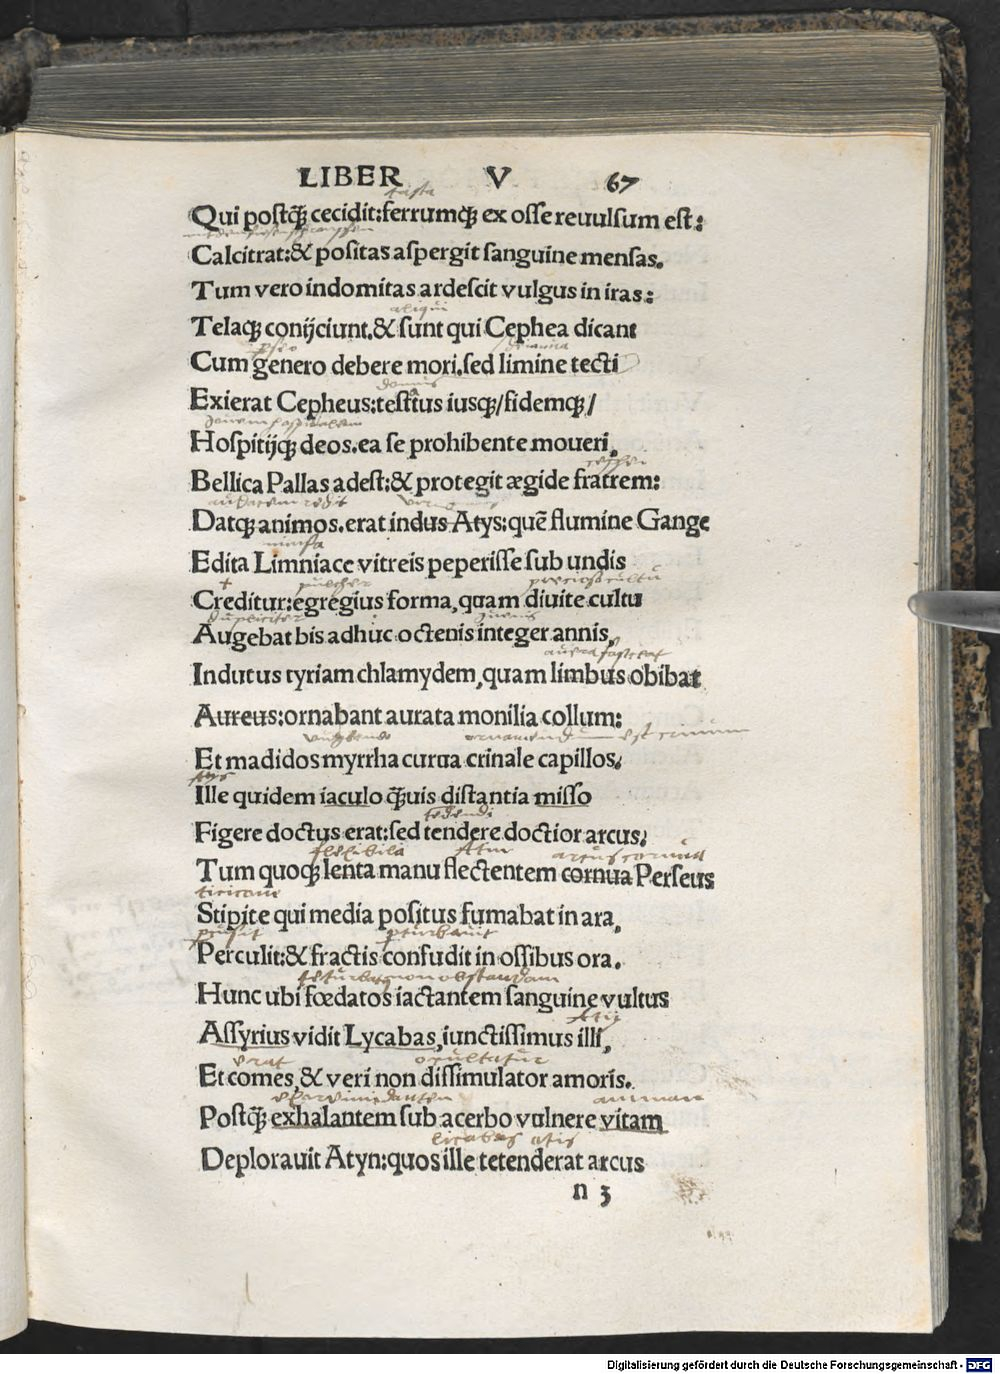 LIBER V 67
Qui postꝙ̃ cecidit:ferrumqꝫ ex osse reuulsum est:
Calcitrat:& positas aspergit sanguine mensas.
Tum vero indomitas ardescit vulgus in iras:
aliqui
Telaqꝫ conijciunt.& sunt qui Cephea dicant
Cum genero debere mori.sed limine tecti
domus
Exierat Cepheus:testatus iusqꝫ/fidemqꝫ/
Hospitijqꝫ deos.ea se prohibente moueri,
Bellica Pallas adest:& protegit ægide fratrem:
Datqꝫ animos.erat indus Atys:quẽ flumine Gange
nimfa
Edita Limniace vitreis peperisse sub undis
pulcher precioso cultu
Creditur:egregius forma,quam diuite cultu
dupliciter
Augebat bis adhuc octenis integer annis,
Indutus tyriam chlamydem,quam limbus obibat
Aureus:ornabant aurata monilia collum:
Et madidos myrrha curua crinale capillos,
Atys
Ille quidem iaculo ꝙ̃uis distantia misso
tedendi
Figere doctus erat:sed tendere doctior arcus,
flexibila Atin arcus cornua
Tum quoqꝫ lenta manu flectentem cornua Perseus
Stipite qui media positus fumabat in ara,
Perculit:& fractis confudit in ossibus ora.
Hunc ubi fœdatos iactantem sanguine vultus
Atij
Assyrius vidit Lycabas,iunctissimus illi,
erat ocultatur
Et comes,& veri non dissimulator amoris.
animam
Postꝙ̃ exhalantem sub acerbo vulnere vitam
licabas atis
Deplorauit Atyn:quos ille tetenderat arcus
n 3
Digitalisierung gefördert durch die Deutsche Forschungsgemeinschaft - DFG